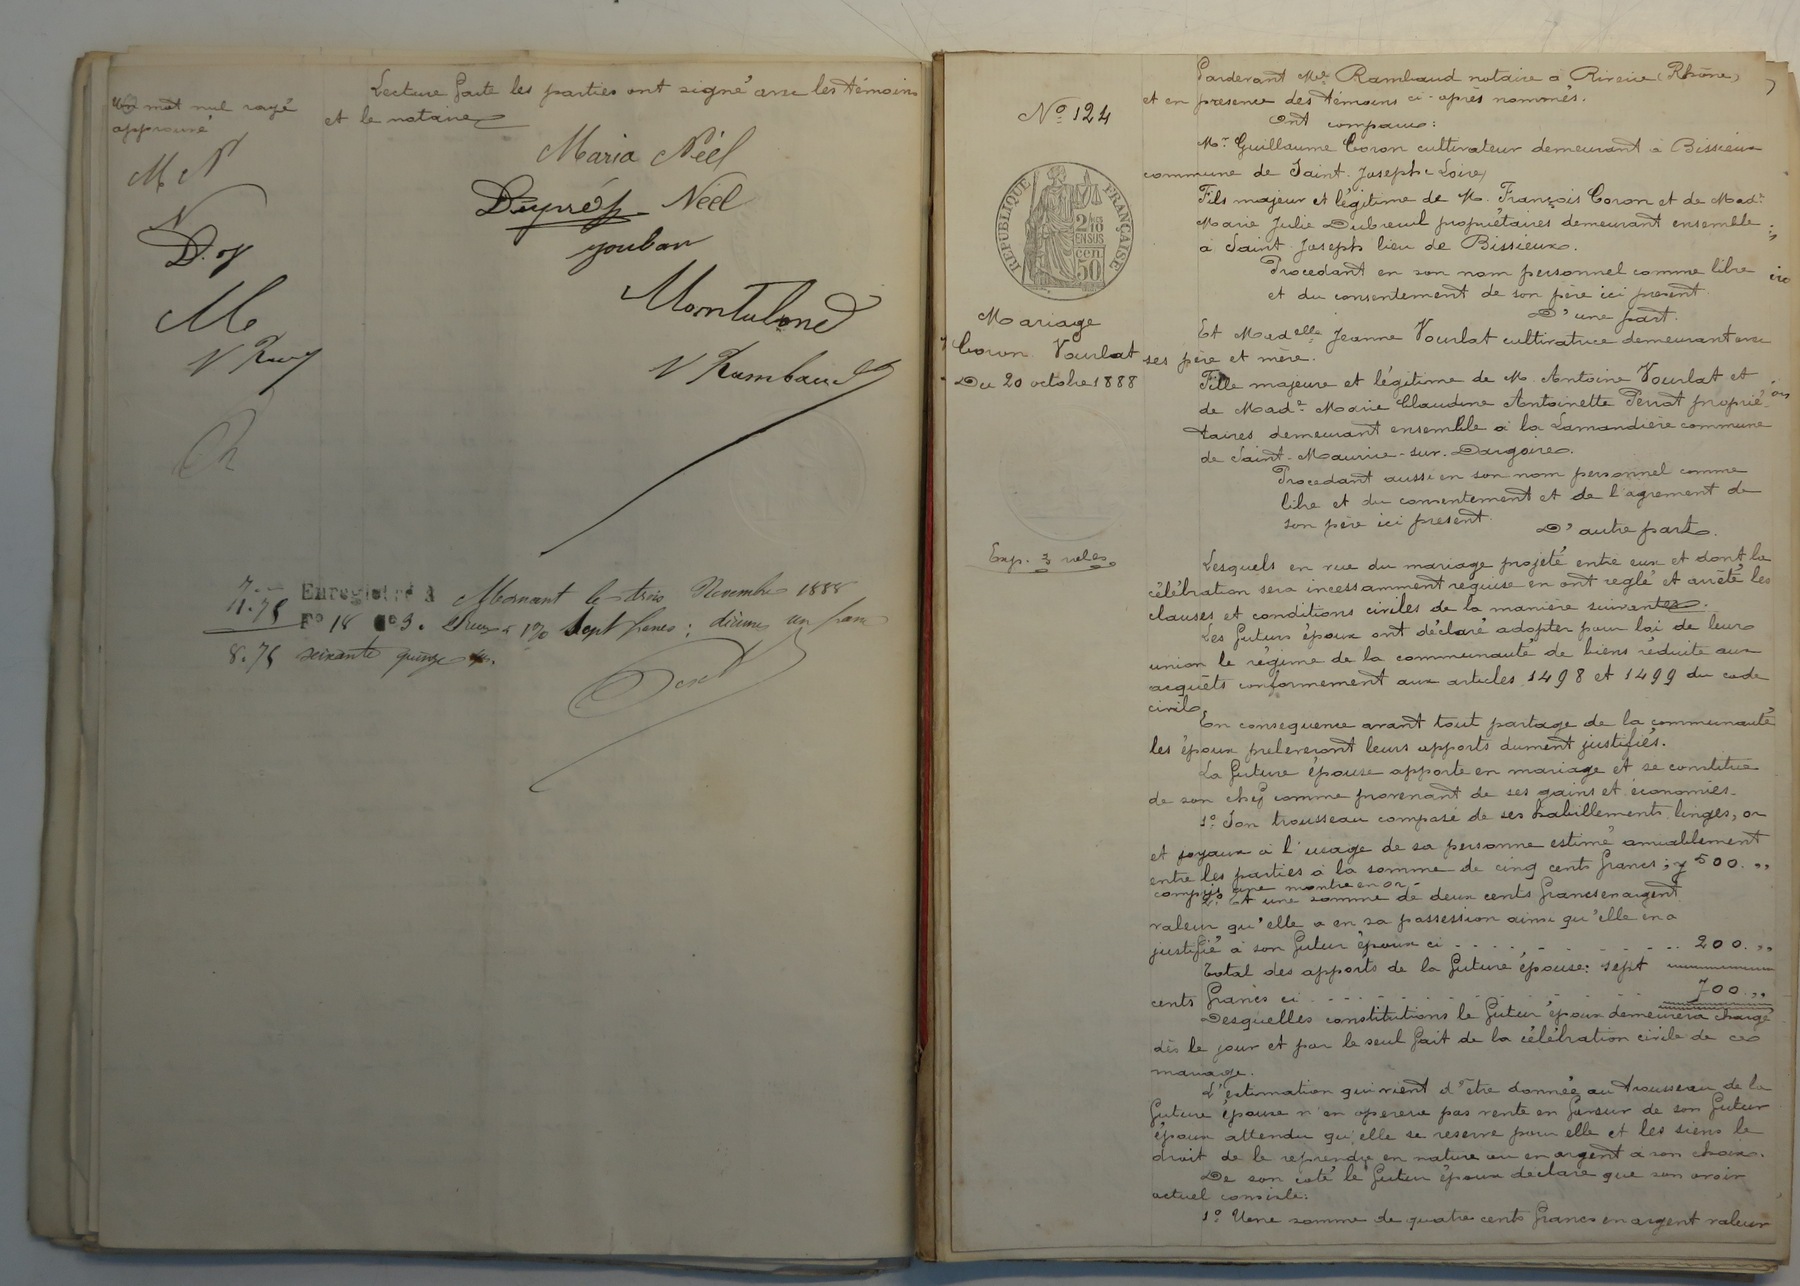 Lecture faite les parties ont signé avec les témoins
et le notaire
Un mot nul rayé
approuvé
M N
N
D. J
M
V Ram
Maria Néel
Néel
Montaland
V Rambaud
7. "
1.75
8.75
Enregistré à Mornant le trois Novembre 1888
Fo 18 Co 3. Reçu sept francs; décimes un franc
soixante quinze c.
No 124
RÉPUBLIQUE FRANÇAISE
2/10
EN SUS
cen.
50
Mariage
Coron Vourlat
Du 20 octobre 1888
Exp. 3 roles
Pardevant Me Rambaud notaire à Riverie (Rhône)
et en presence des témoins ci-après nommés.
Ont comparu:
Mr Guillaume Coron cultivateur demeurant à Bissieux
commune de Saint-Joseph (Loire)
Fils majeur et légitime de M. François Coron et de Made
Marie Julie Dubreuil propriétaires demeurant ensemble
à Saint Joseph lieu de Bissieux.
Procedant en son nom personnel comme libre
et du consentement de son père ici present.
D'une part.
Et Madelle Jeanne Vourlat cultivatrice demeurant avec
ses père et mère.
Fille majeure et légitime de M. Antoine Vourlat et
de Made Marie Claudine Antoinette Perrat proprié-
taires demeurant ensemble à la Lamandière commune
de Saint-Maurice-sur-Dargoire.
Procedant aussi en son nom personnel comme
libre et du consentement et de l'agrement de
son père ici present.
D'autre part.
Lesquels en vue du mariage projeté entre eux et dont la
célébration sera incessamment requise en ont reglé et arrêté les
clauses et conditions civiles de la manière suivante.
Les futurs époux ont déclaré adopter pour loi de leur
union le régime de la communauté de biens réduite aux
acquêts conformement aux articles 1498 et 1499 du code
civil.
En consequence avant tout partage de la communauté
les époux preleveront leurs apports dument justifiés.
La future épouse apporte en mariage et se constitue
de son chef comme provenant de ses gains et économies.
1o Son trousseau composé de ses habillements, linges, or
et joyaux à l'usage de sa personne estimé amiablement
entre les parties à la somme de cinq cents francs; y 500. "
compris une montre en or.
2o Et une somme de deux cents francs en argent
valeur qu'elle a en sa possession ainsi qu'elle en a
justifié à son futur époux ci . . . . . . . . . 200. "
Total des apports de la future épouse: sept
cents francs ci . . . . . . . . . 700. "
Desquelles constitutions le futur époux demeurera chargé
dès le jour et par le seul fait de la célébration civile de ce
mariage.
L'estimation qui vient d'être donnée au trousseau de la
future épouse n'en operera pas vente en faveur de son futur
époux attendu qu'elle se reserve pour elle et les siens le
droit de le reprendre en nature ou en argent à son choix.
De son coté le futur époux declare que son avoir
actuel consiste:
1o Une somme de quatre cents francs en argent valeur